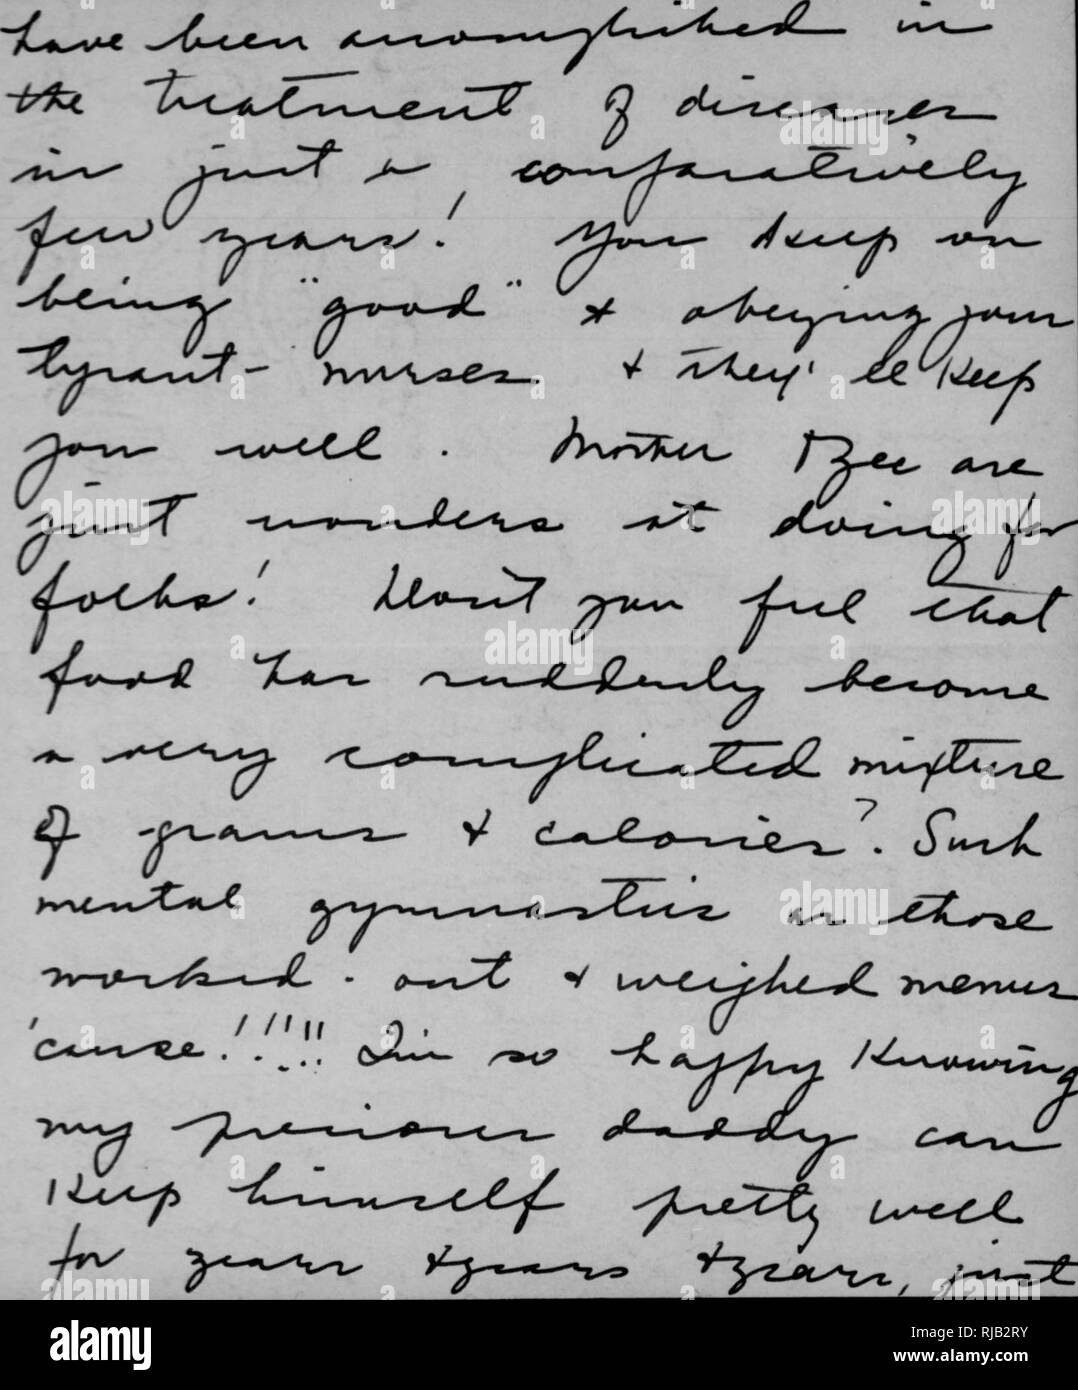 have been accomplished in
the treatment of diseases
in just a comparatively
few years! You keep on
being "good" & obeying your
tyrant-nurses & they'll keep
you well. Mother & Zee are
just wonders at doing for
folks! Don't you feel that
food has suddenly become
a very complicated mixture
of grams & calories? Such
mental gymnastics as those
worked-out & weighed menus
'cause!!!!! I'm so happy knowing
my precious daddy can
keep himself pretty well
for years & years & years, just
alamy
Image ID: RJB2RY
www.alamy.com